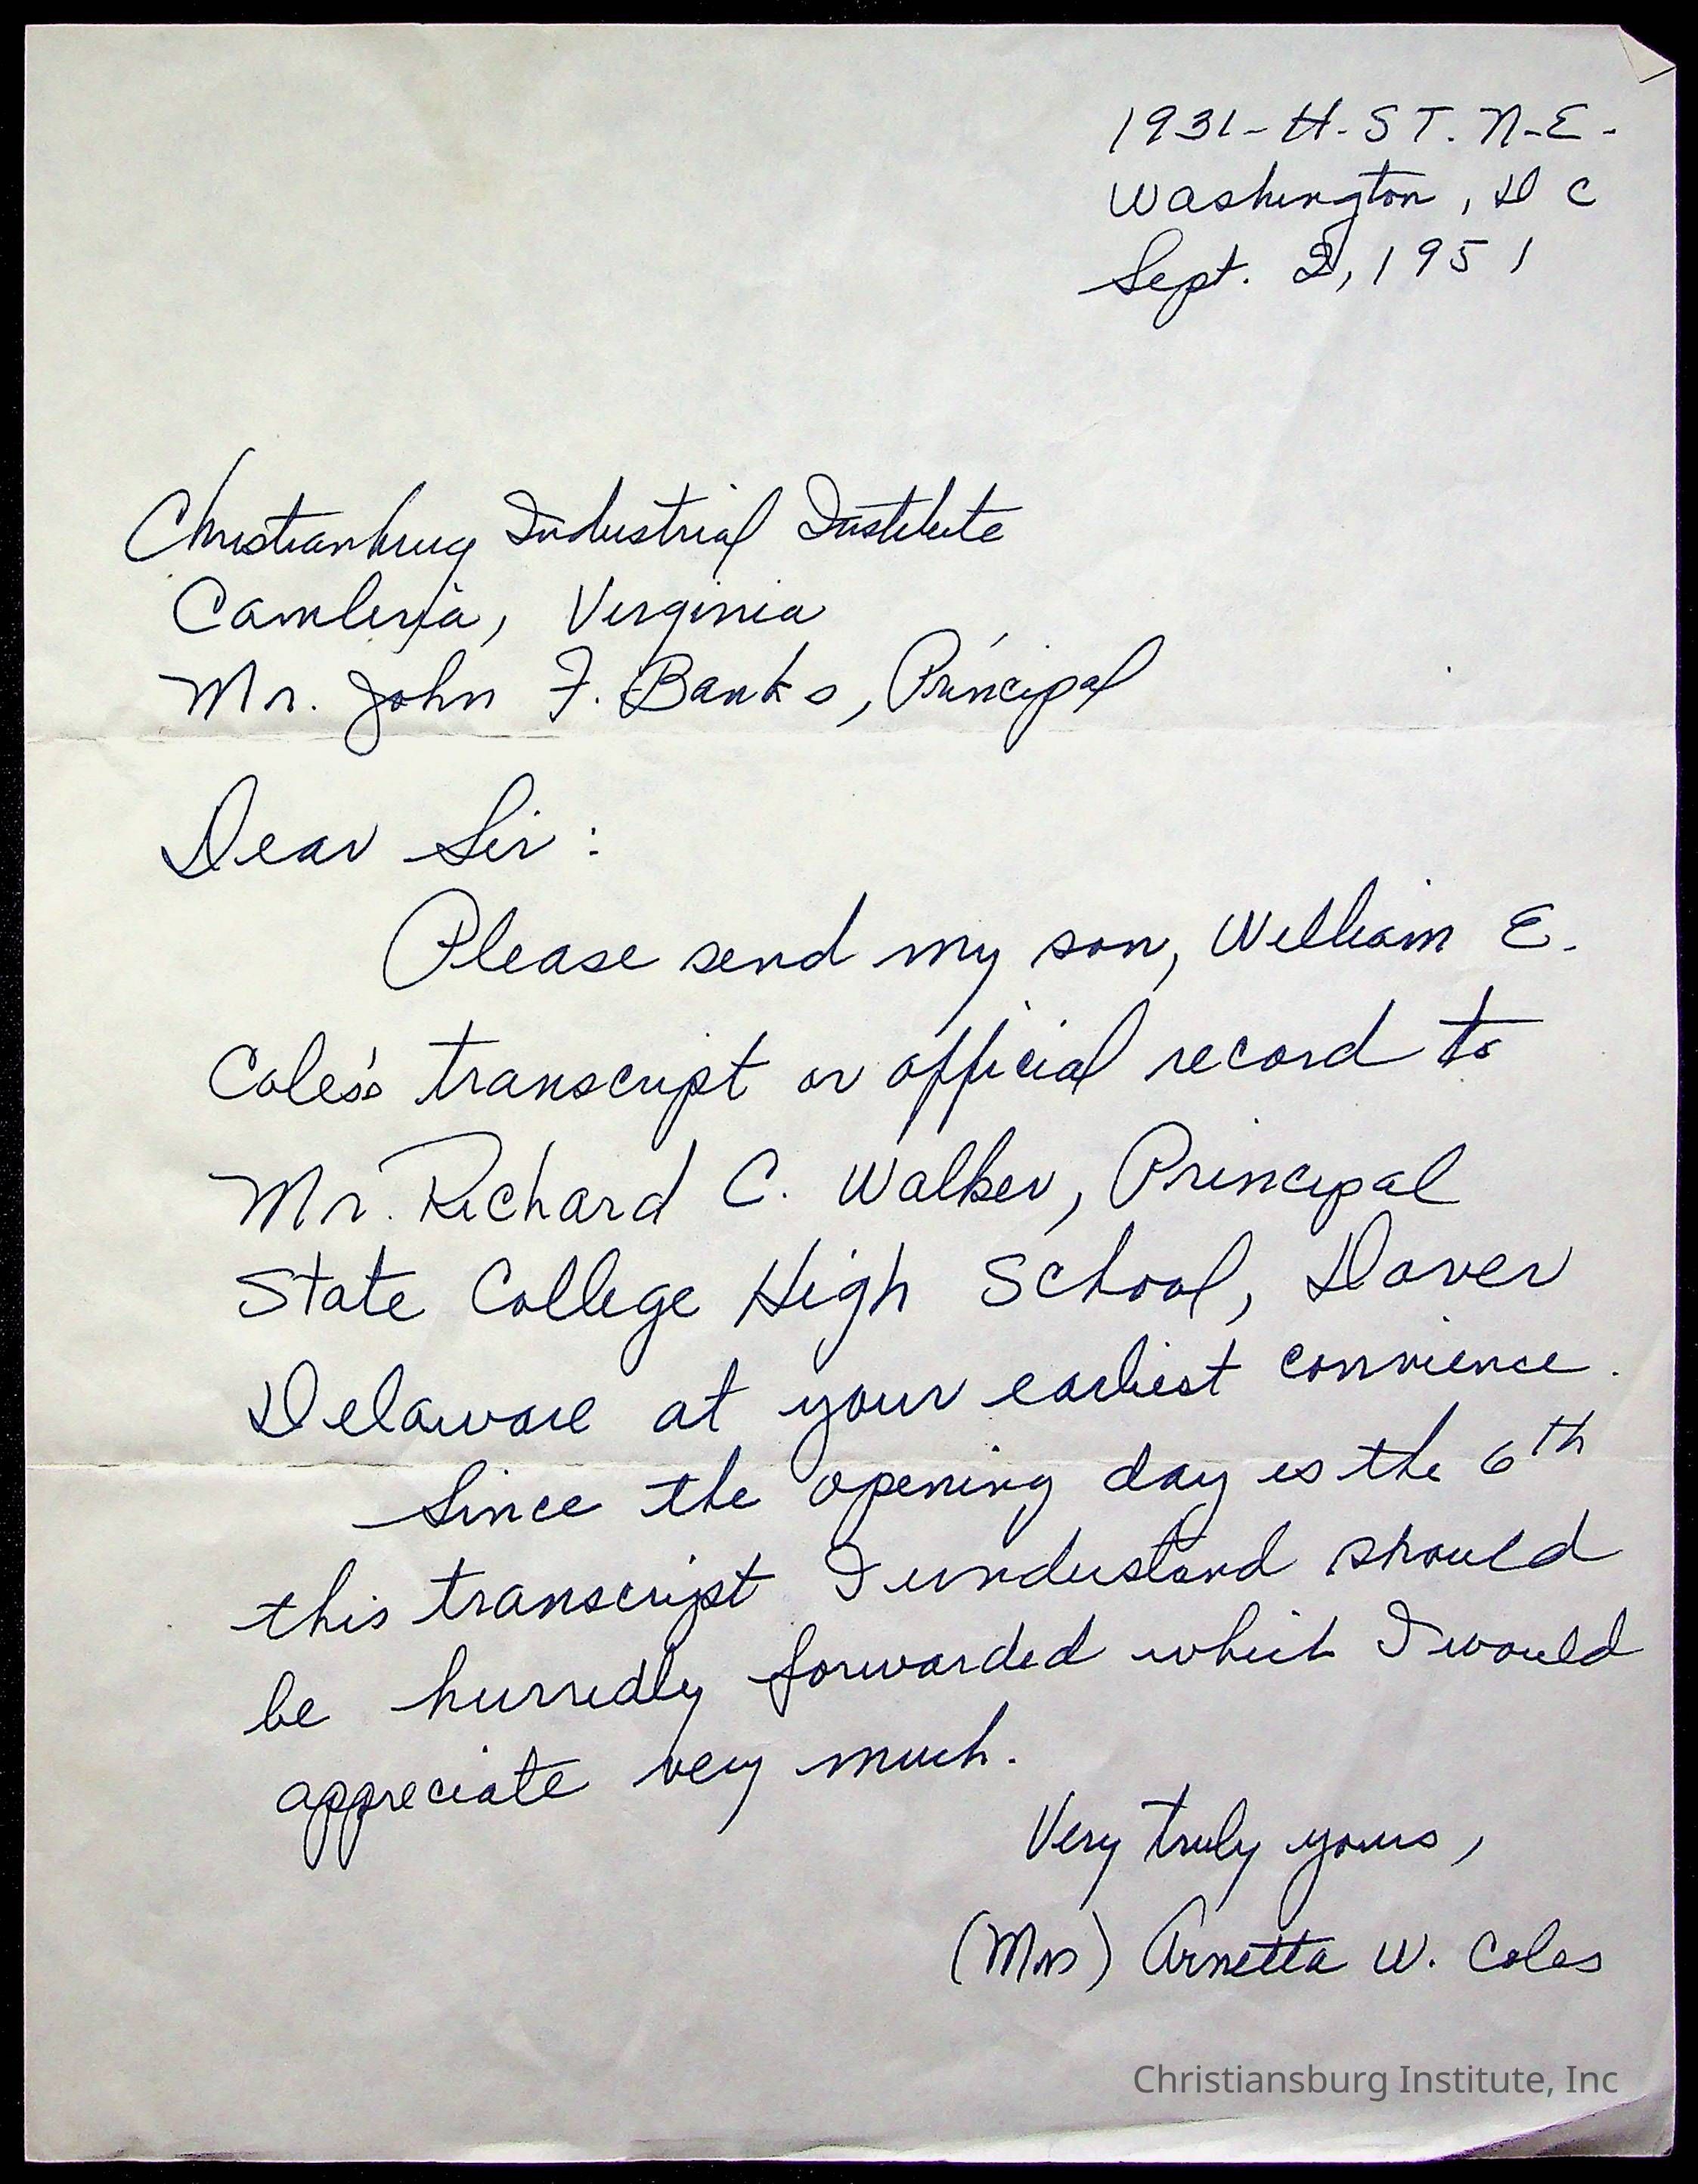 1931-H. ST. N-E-
Washington, D C
Sept. 2, 1951
Christianburg Industrial Institute
Cambria, Virginia
Mr. John F. Banks, Principal
Dear Sir:
Please send my son, William E.
Coles's transcript or official record to
Mr. Richard C. Walker, Principal
State College High School, Dover
Delaware at your earliest convience.
Since the opening day is the 6th
this transcript I understand should
be hurredly forwarded which I would
appreciate very much.
Very truly yours,
(Mrs) Arnetta W. Coles
Christiansburg Institute, Inc